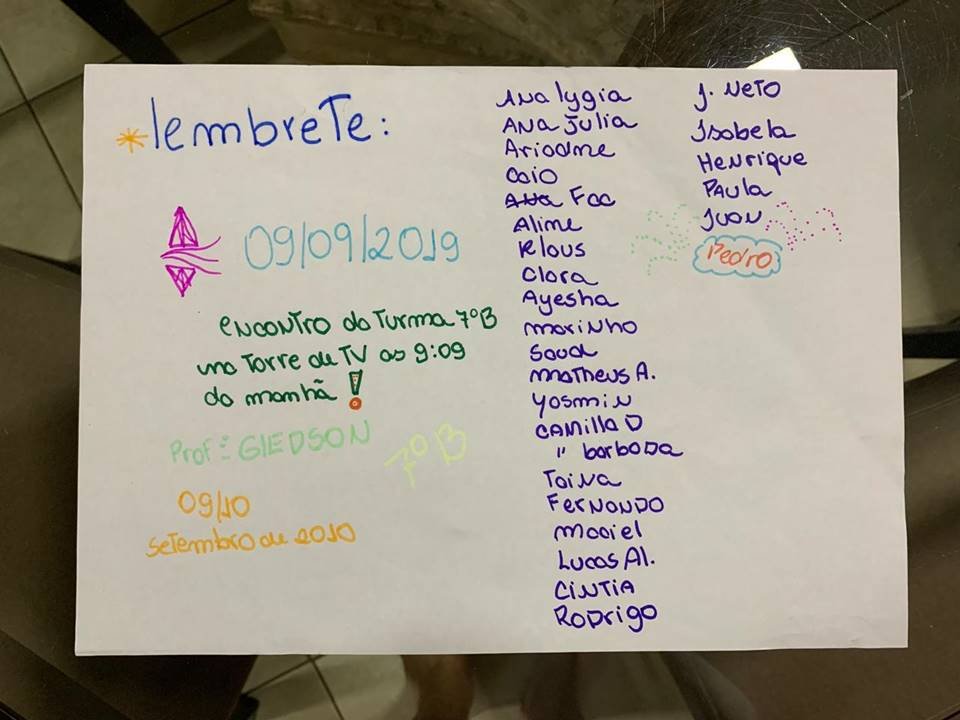 *lembrete:
09/09/2019
encontro da Turma 7ºB
na Torre de TV as 9:09
da manhã!
Prof: GIEDSON
7ºB
09/10
setembro de 2010
Ana lygia
ANA Julia
Ariadne
Caio
Fac
Aline
Klaus
Clara
Ayesha
marinho
Saud
matheus A.
Yosmin
CAMilla D
" barboDa
Taina
FerNANDO
maciel
Lucas Al.
CINTIA
RoDrigo
J. Neto
Isabela
HeNrique
PAULA
JUAN
Pedro